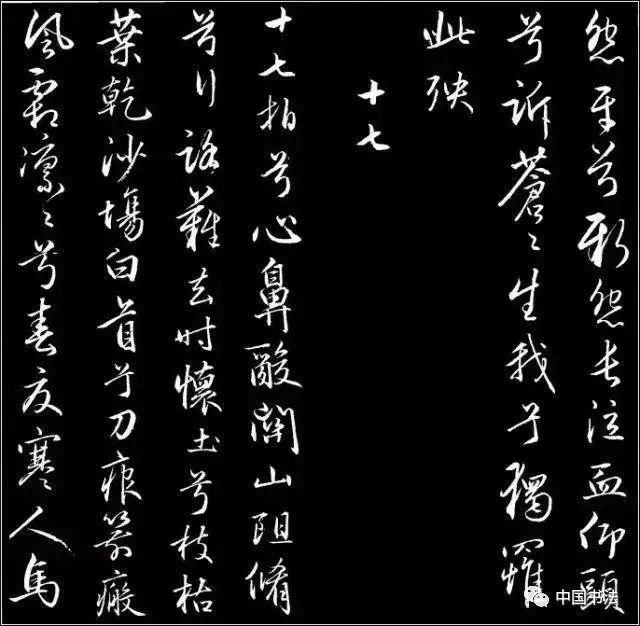 怨平兮新怨長泣血仰頭
兮訴蒼〻生我兮獨罹
此殃
十七
十七拍兮心鼻酸關山阻脩
兮行路難去時懷土兮枝枯
葉乾沙場白首兮刀痕箭瘢
風霜凛〻兮春夏寒人馬
中国书法